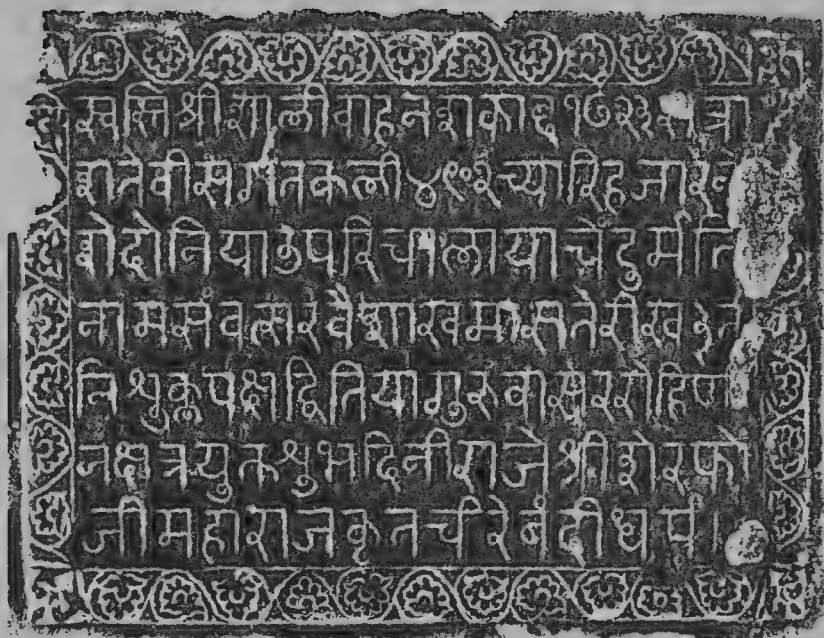 स्वस्ति श्री शालीवाहन शकाछ १७२३
कली ४९०२ च्यारि हजार
शे दोनि या उपरि चालायाचे दुर्मति
नाम संवत्सर वैशाख मास तेरीख
शुक्लपक्ष द्वितिया गुरुवासर रोहिणी
नक्षत्रयुक्त शुभदिनी राजे श्री शेरफो
जी महाराज कृत चीरेबंदी धर्म